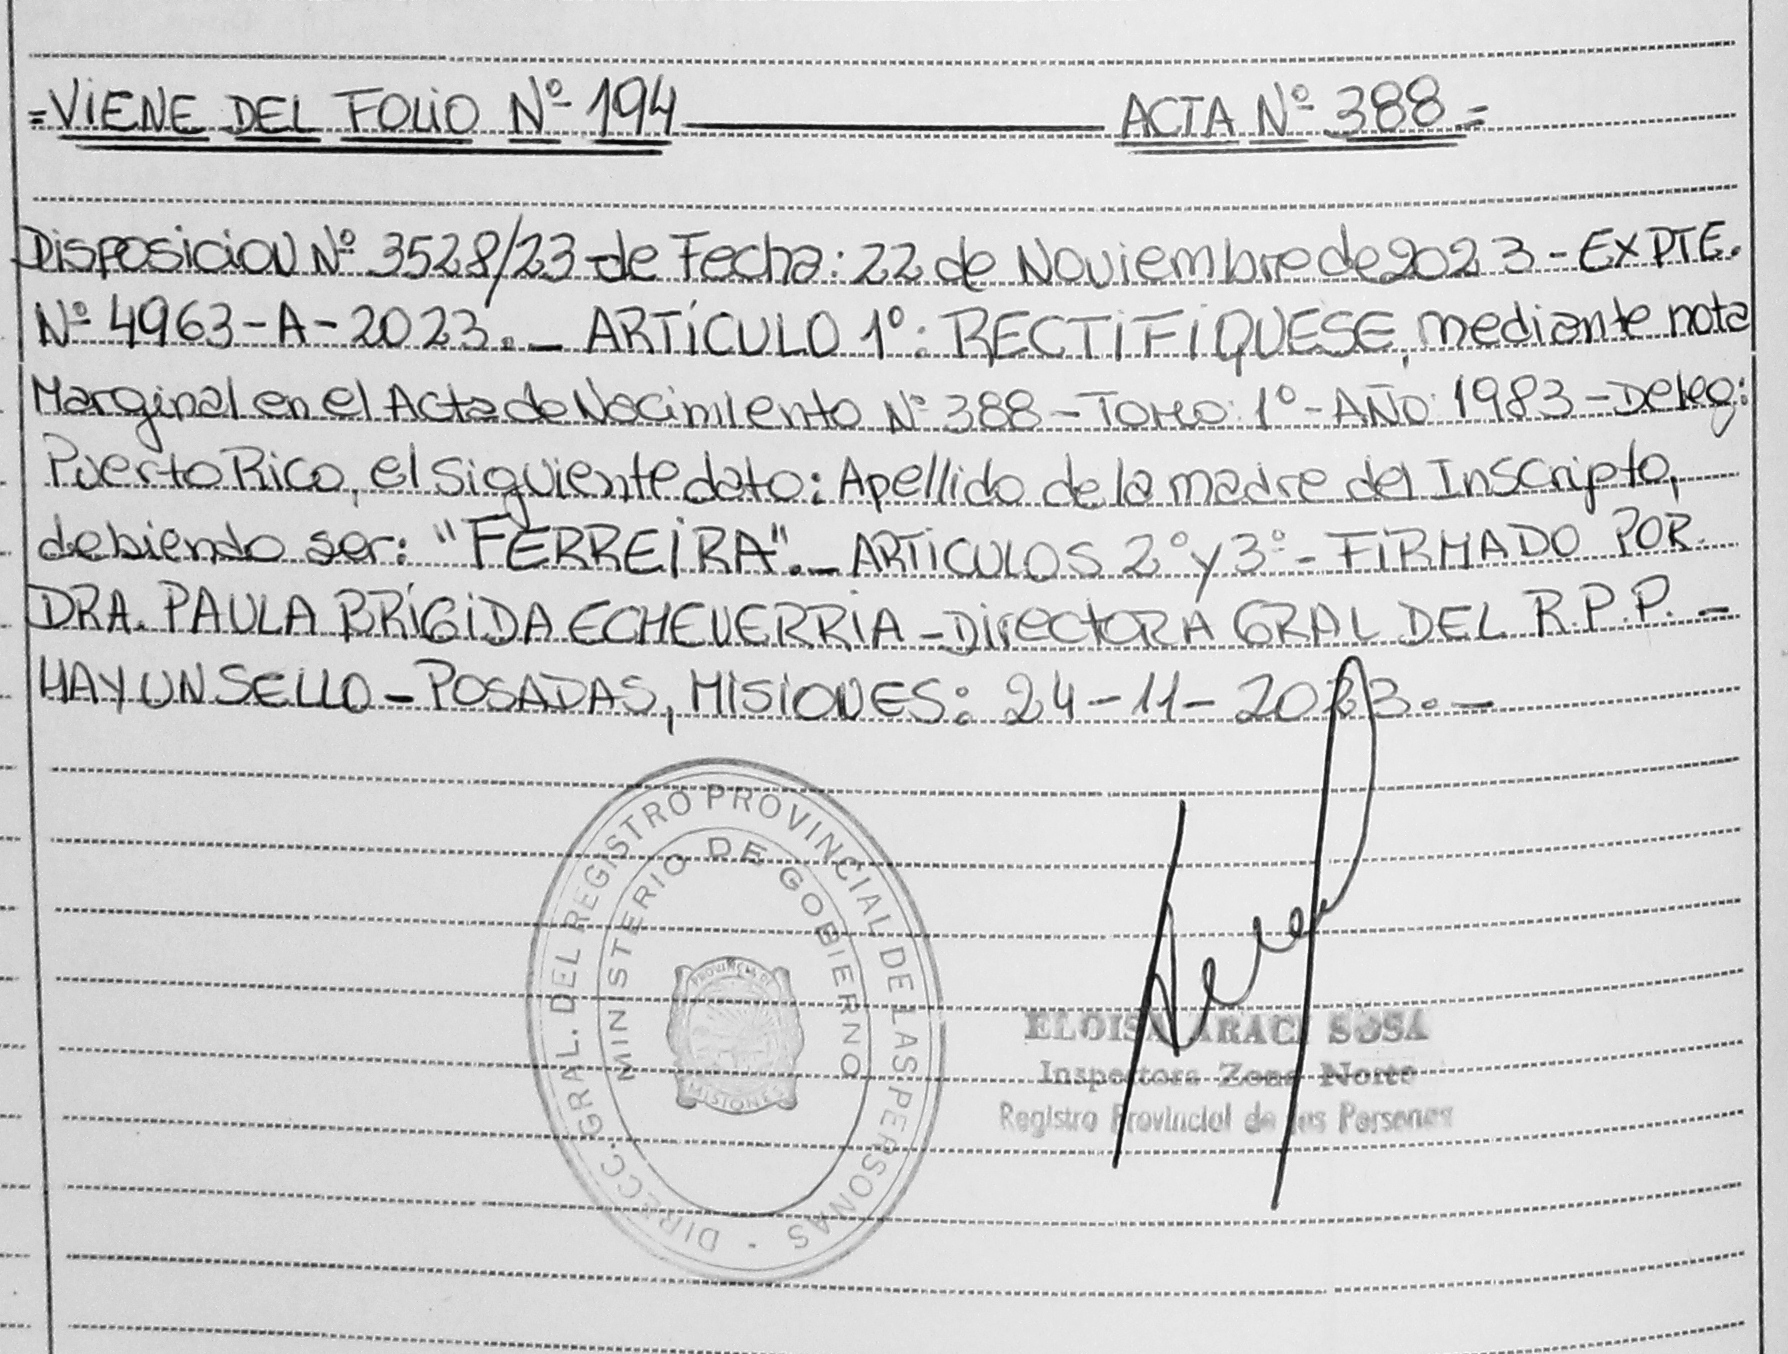 =VIENE DEL FOLIO Nº 194 ACTA Nº 388=
Disposicion Nº 3528/23 de Fecha: 22 de Noviembre de 2023 - EXPTE.
Nº 4963-A-2023.- ARTÍCULO 1º: RECTIFIQUESE, mediante nota
Marginal en el Acta de Nacimiento Nº 388 - Tomo: 1º - AÑO: 1983 - Deleg:
Puerto Rico, el siguiente dato: Apellido de la madre del Inscripto,
debiendo ser: "FERREIRA".- ARTICULOS 2º y 3º - FIRMADO POR
DRA. PAULA BRÍGIDA ECHEVERRIA - Directora GRAL DEL R.P.P. -
HAY UN SELLO - POSADAS, MISIONES: 24-11-2023.-
DIRECC. GRAL. DEL REGISTRO PROVINCIAL DE LAS PERSONAS
MINISTERIO DE GOBIERNO
PROVINCIA DE
MISIONES
ELOISA ARACI SOSA
Inspectora Zona Norte
Registro Provincial de las Personas